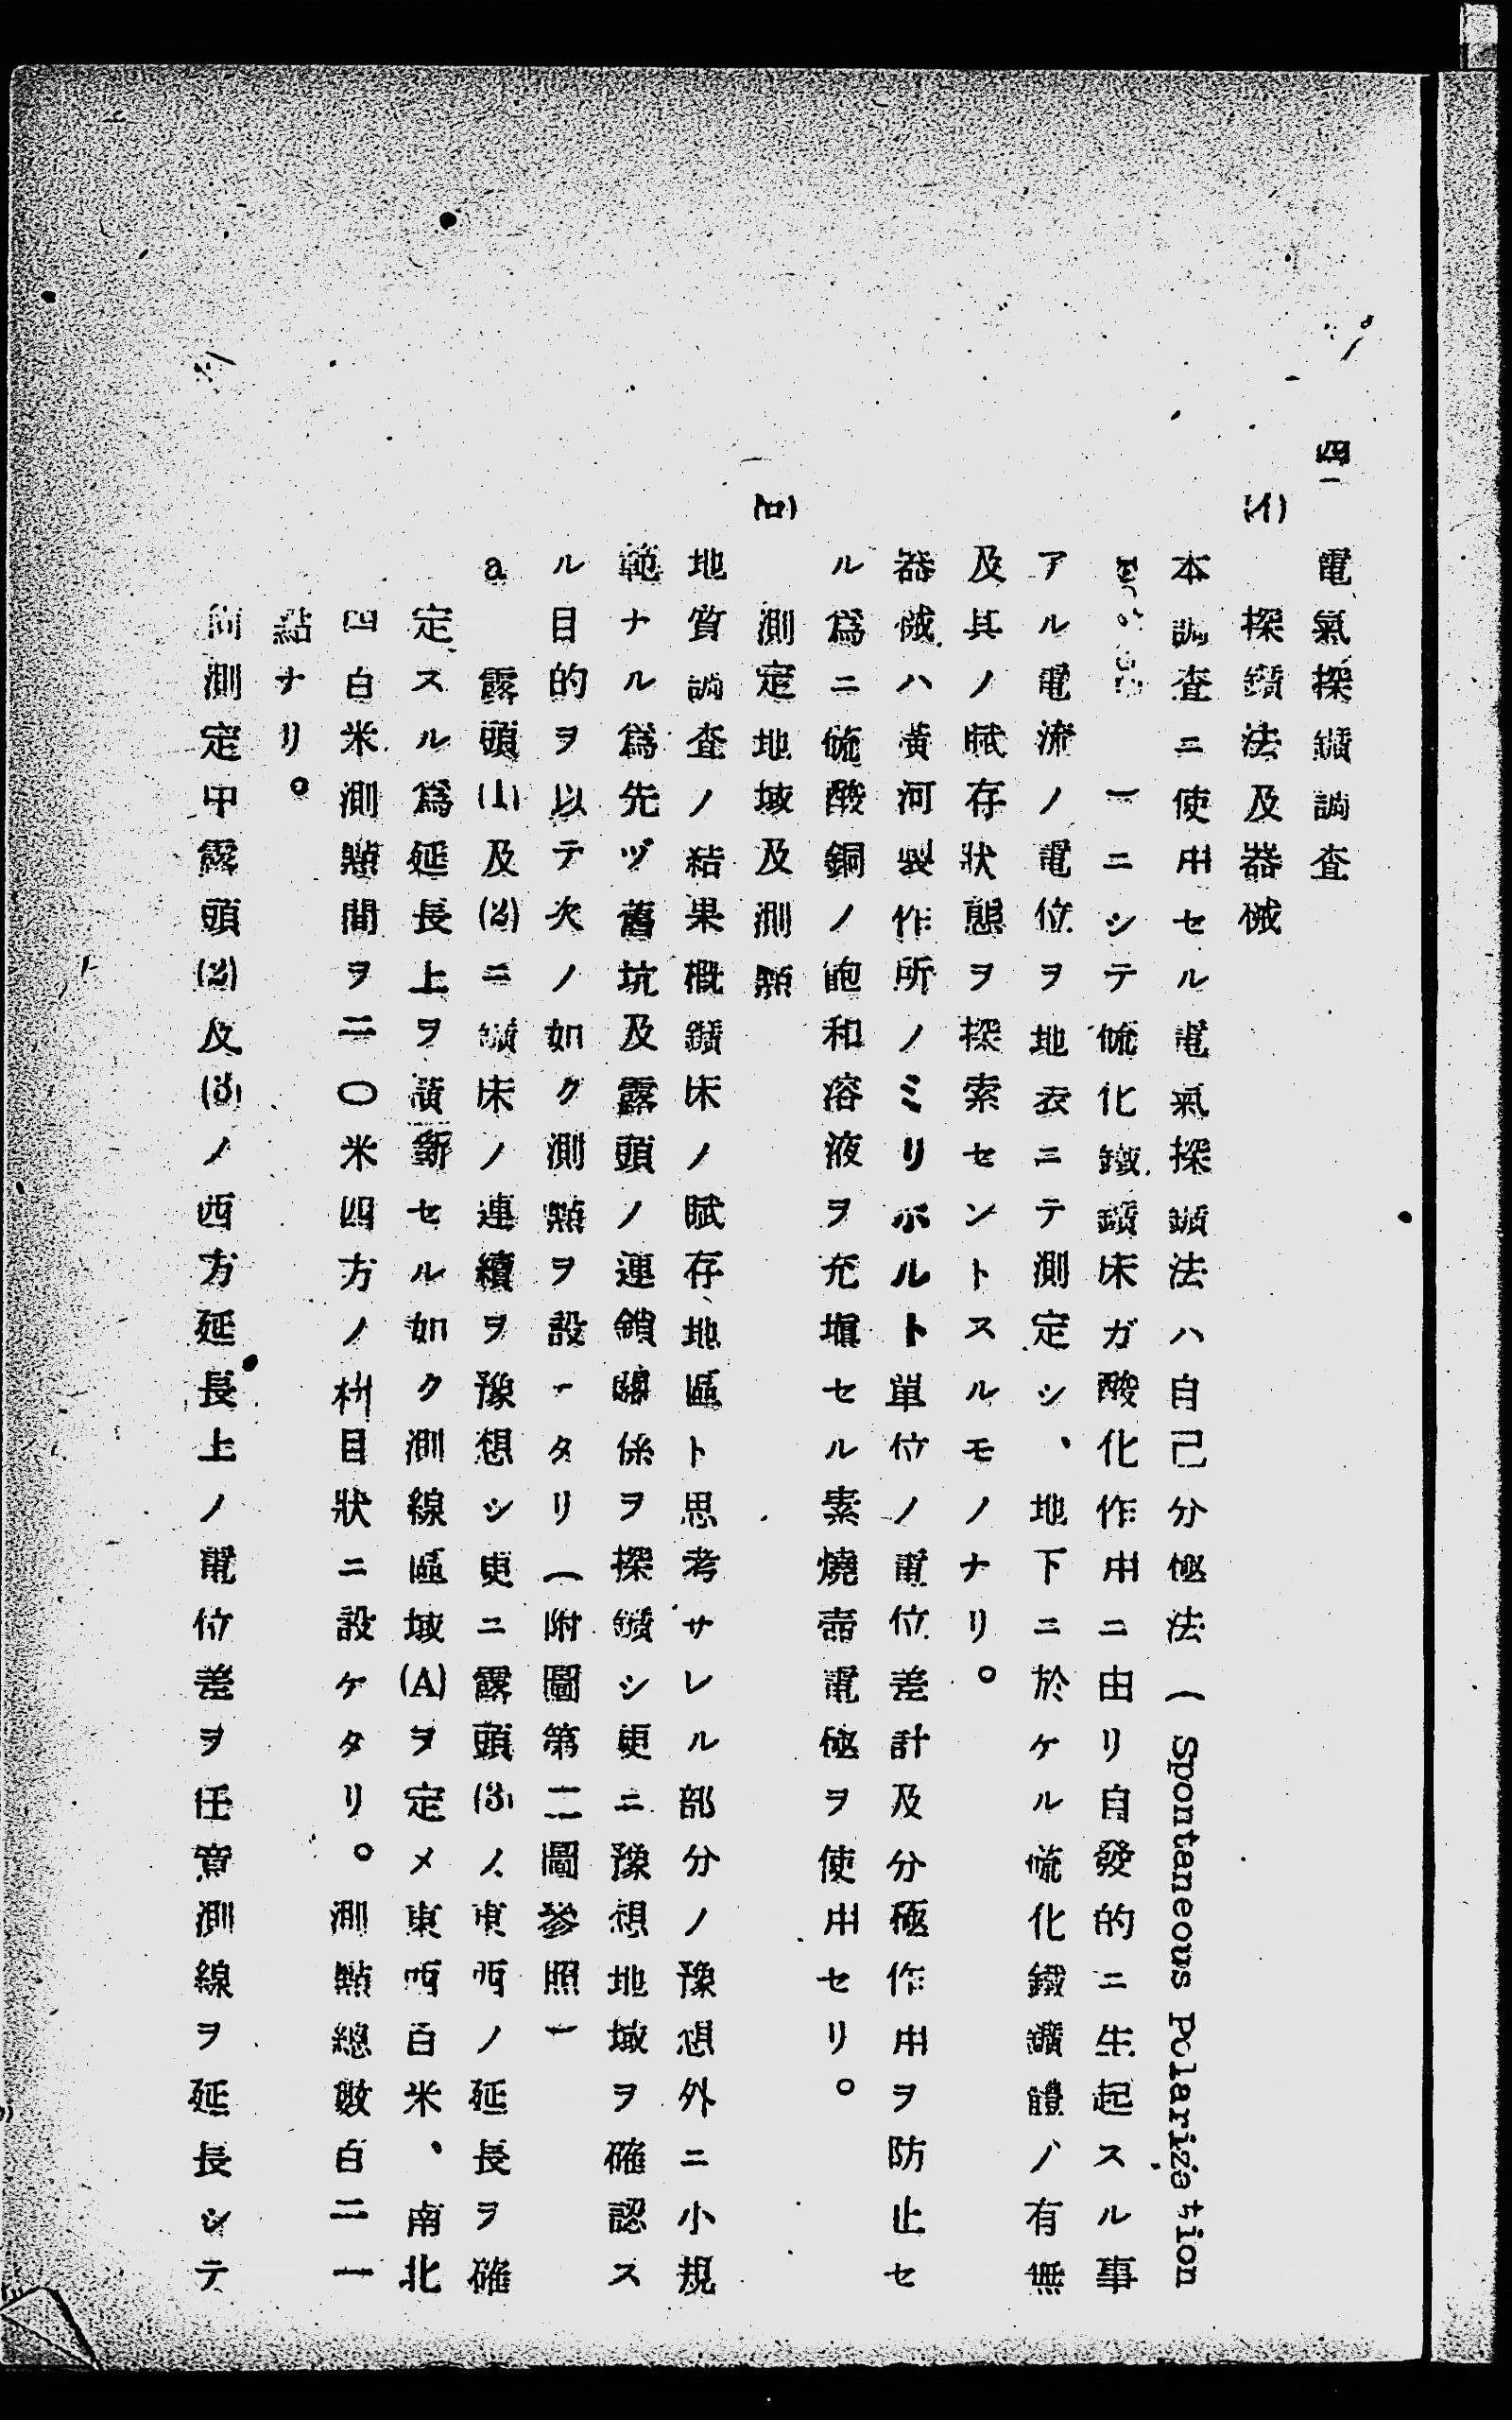 四、電氣探鑛調査
(イ) 探鑛法及器械
本調査ニ使用セル電氣探鑛法ハ自己分極法(Spontaneous Polarization
一ニシテ硫化鐵鑛床ガ酸化作用ニ由リ自發的ニ生起スル事
アル電流ノ電位ヲ地表ニテ測定シ、地下ニ於ケル硫化鐵鑛體ノ有無
及其ノ賦存狀態ヲ探索セントスルモノナリ。
器械ハ黃河製作所ノミリボルト單位ノ電位差計及分極作用ヲ防止セ
ル爲ニ硫酸銅ノ飽和溶液ヲ充塡セル素燒壺電極ヲ使用セリ。
(ロ) 測定地域及測點
地質調査ノ結果槪鑛床ノ賦存地區ト思考サレル部分ノ豫想外ニ小規
範ナル爲先ヅ舊坑及露頭ノ連鎖關係ヲ探鑛シ更ニ豫想地域ヲ確認ス
ル目的ヲ以テ次ノ如ク測點ヲ設ケタリ(附圖第二圖參照)
a 露頭(1)及(2)ニ鑛床ノ連續ヲ豫想シ更ニ露頭(3)ノ東西ノ延長ヲ確
定スル爲延長上ヲ橫斷セル如ク測線區域(A)ヲ定メ東西百米、南北
四百米測點間ヲ二〇米四方ノ枡目狀ニ設ケタリ。測點總數百二一
點ナリ。
尙測定中露頭(2)及(3)ノ西方延長上ノ電位差ヲ任意測線ヲ延長シテ